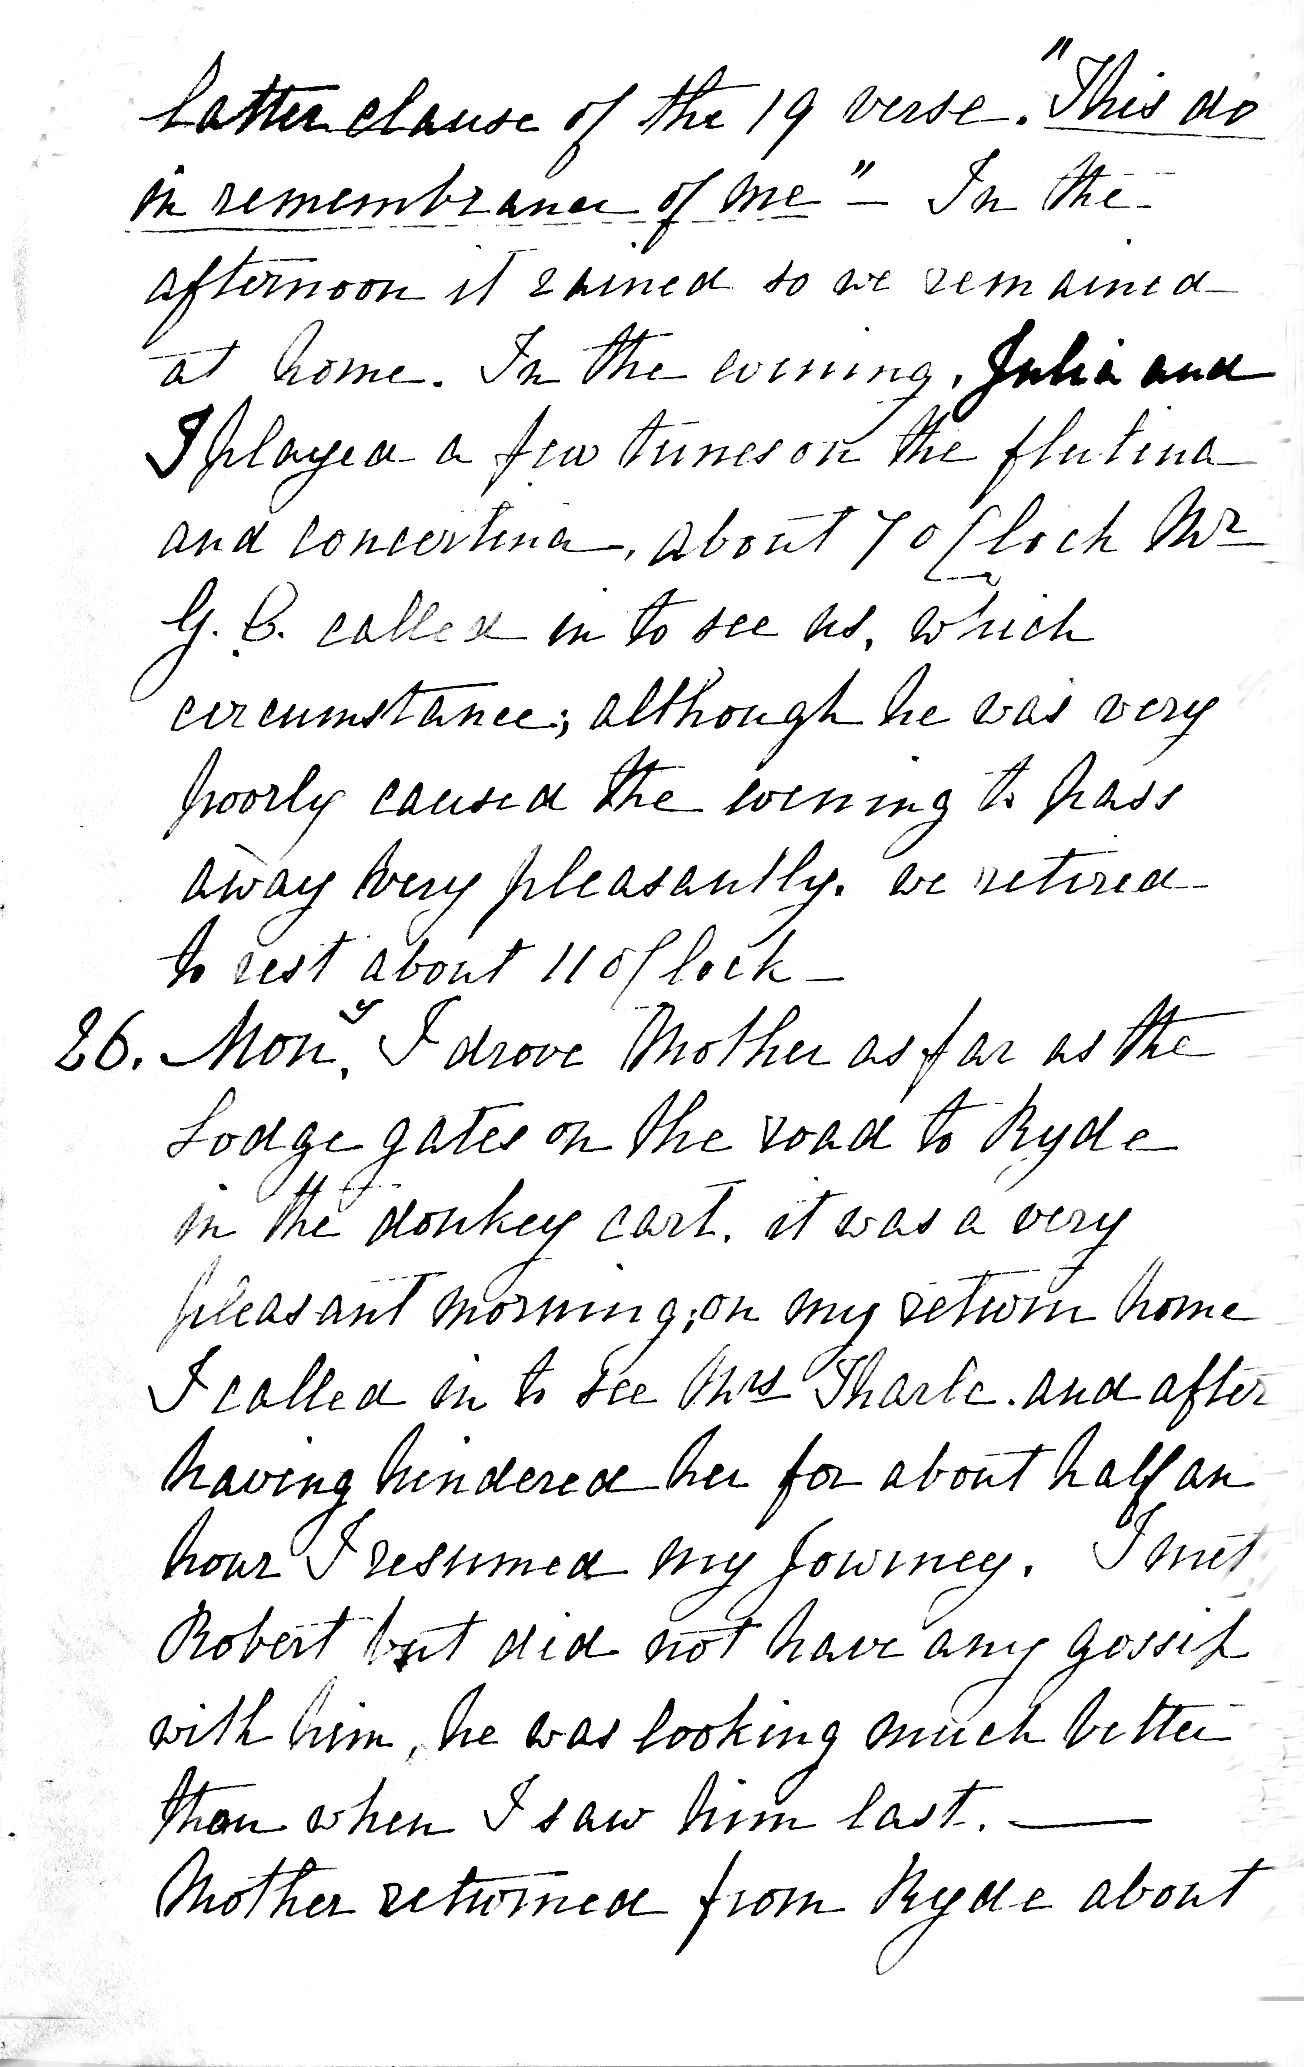 latter clause of the 19 verse. "This do
in remembrance of me" - In the
afternoon it rained so we remained
at home. In the evening, Julia and
I played a few tunes on the flutina
and concertina, about 7 oClock Mr
G. B. called in to see us, which
circumstance; although he was very
poorly caused the evening to pass
away very pleasantly. we retired
to rest about 11 oClock -
26. Mony, I drove Mother as far as the
Lodge gates on the road to Ryde
in the donkey cart. it was a very
pleasant morning; on my return home
I called in to see Mrs Tharle. and after
having hindered her for about half an
hour I resumed my Journey. I met
Robert but did not have any gossip
with him, he was looking much better
than when I saw him last. —
Mother returned from Ryde about